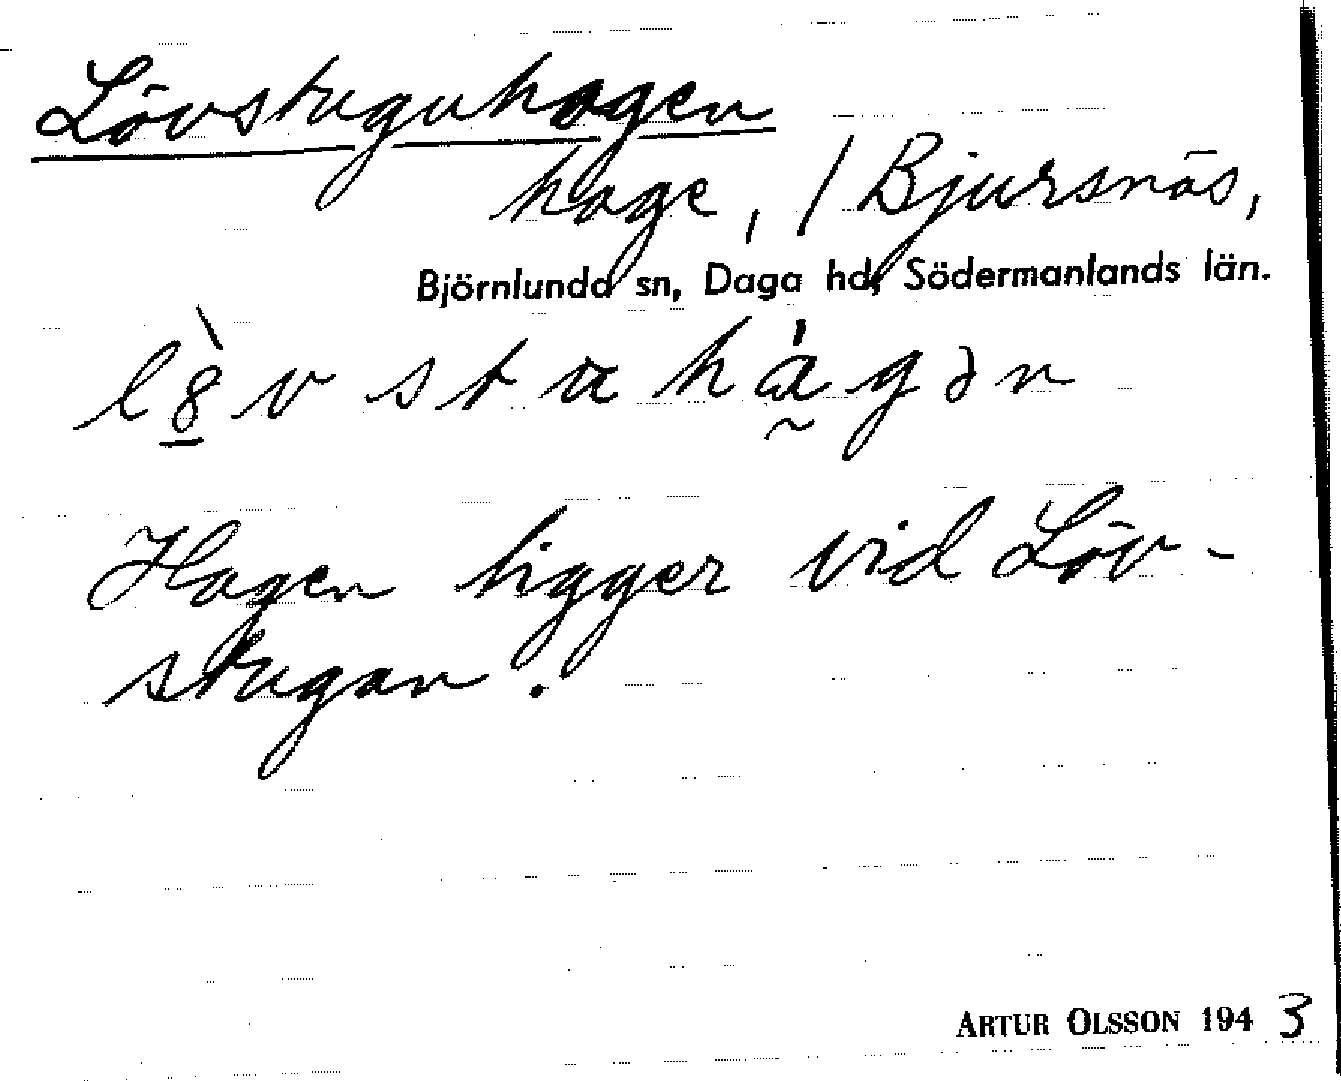 Lövstuguhagen
hage, / Bjursnäs,
Björnlunda sn, Daga hd, Södermanlands län.
l 8̲̀ v s t u h à̰ g ə n
Hagen ligger vid Löv-
stugan.
ARTUR OLSSON 1943